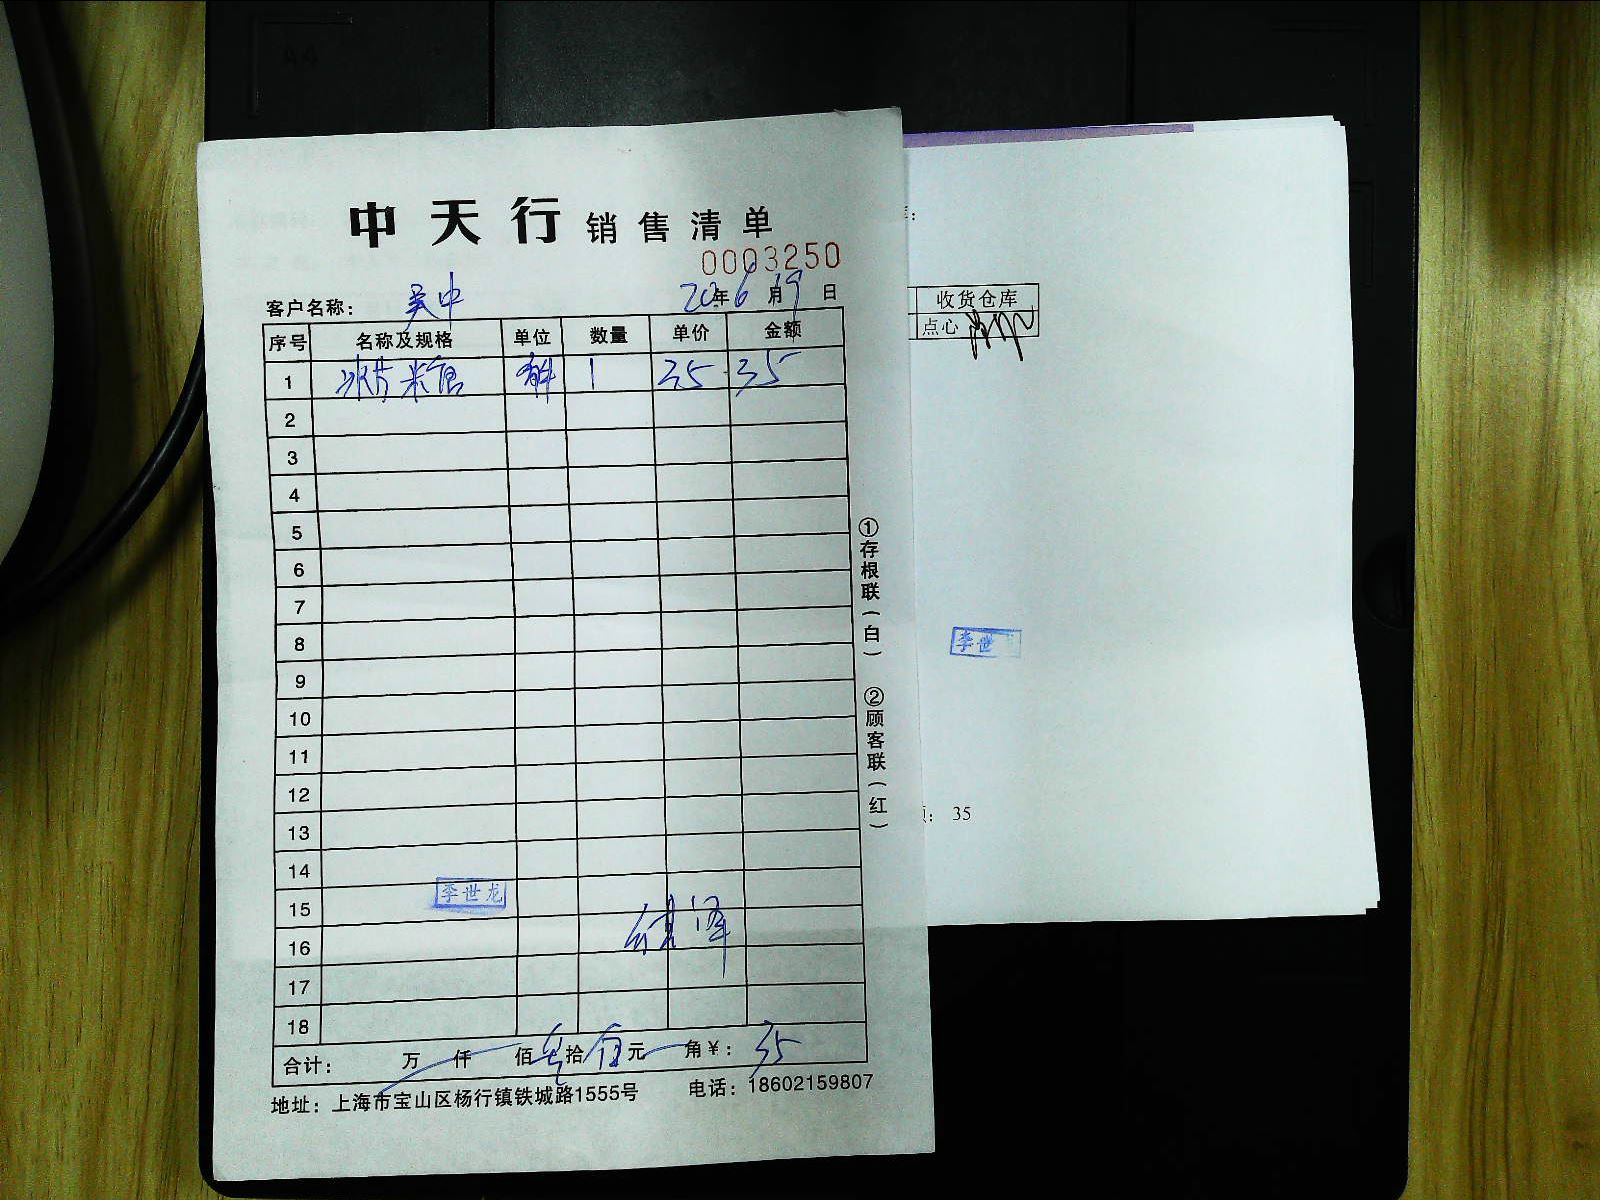 中天行 销售清单
0003250
客户名称： 吴中 20年6月19日
序号 名称及规格 单位 数量 单价 金额
1 冰片米糖 1 35 35
2
3
4
5
6
7
8
9
10
11
12
13
14
15
16
17
18
李世龙
合计： 万 仟 佰 叁拾 伍元 角￥： 35
地址：上海市宝山区杨行镇铁城路1555号 电话：18602159807
①存根联（白） ②顾客联（红）
收货仓库
点心
李世
：35